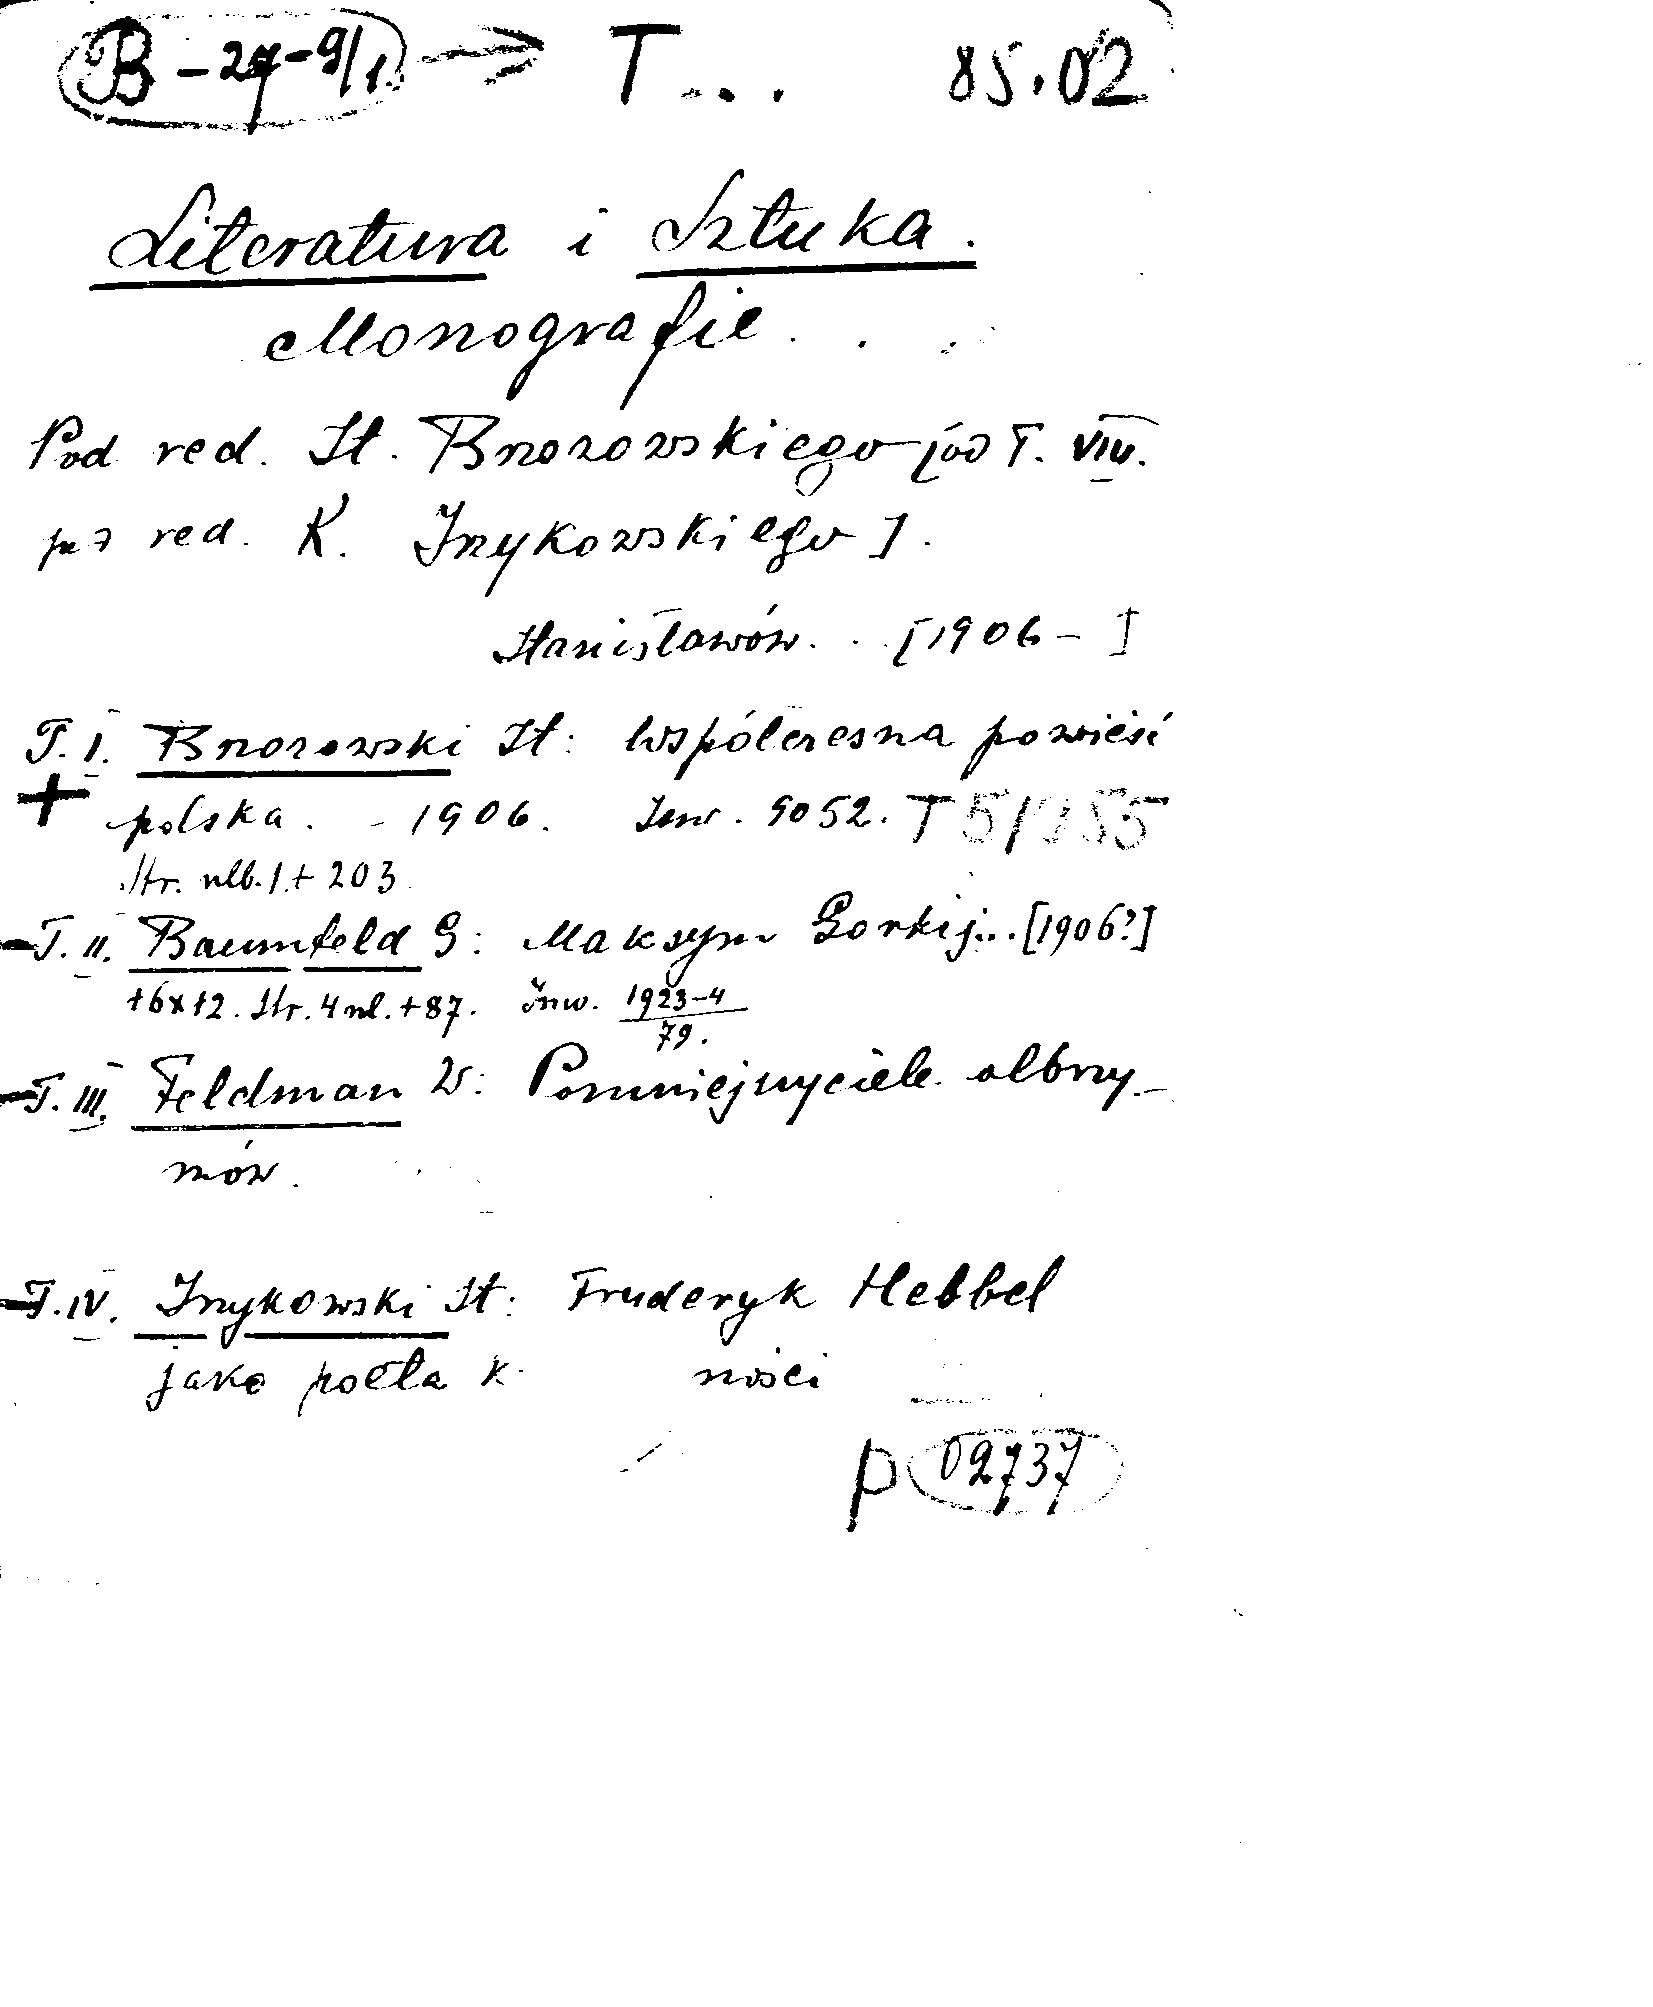 B-27-9/1. → T... 85.02
Literatura i Sztuka.
Monografie . . .
Pod red. St. Brzozowskiego [od T. VIII.
pod red. K. Irzykowskiego].
Stanisławów. . [1906 - ]
T. I. Brzozowski St: Współczesna powieść
+ polska. - 1906. Inw. 9052. T 51255
Str. nlb. 1 + 203
- T. II. Baumfeld G: Maksym Gorkij... [1906?]
16x12. Str. 4 nl. + 87. Inw. 1923-4/79.
- T. III. Feldman W: Pomniejszyciele olbrzy-
mów.
- T. IV. Irzykowski St: Fryderyk Hebbel
jako poeta k ności
p 02737